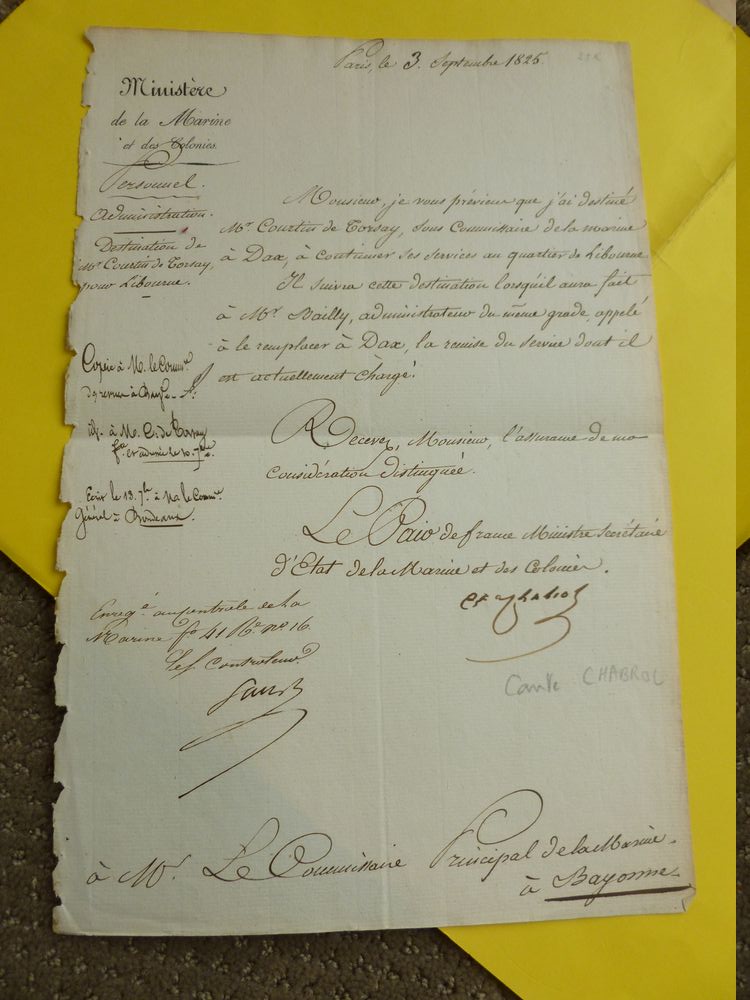 Paris, le 3. Septembre 1825.
Ministère
de la Marine
et des Colonies.
Personnel.
Administration.
Destination de
Mr. Courtin de Torsay,
pour Libourne.
Monsieur, je vous préviens que j'ai destiné
Mr. Courtin de Torsay, sous Commissaire de la marine
à Dax, à continuer ses services au quartier de Libourne.
Il suivra cette destination lorsqu'il aura fait
à Mr. Bailly, administrateur du même grade, appelé
à le remplacer à Dax, la remise du service dont il
est actuellement chargé.
Copie à M. le Comm.re
à M. C. de Torsay
Ecrit le 13. 7.bre à M. le Comm.re
Général à Bordeaux.
Recevez, Monsieur, l'assurance de ma
considération distinguée.
Le Pair de france Ministre Secrétaire
d'Etat de la Marine et des Colonies.
Cte Chabrol
Comte CHABROL
Enreg.é au contrôle de la
Marine f.o 41 R.e n.o 16
Le s. Controleur
à Mr. Le Commissaire Principal de la Marine.
à Bayonne